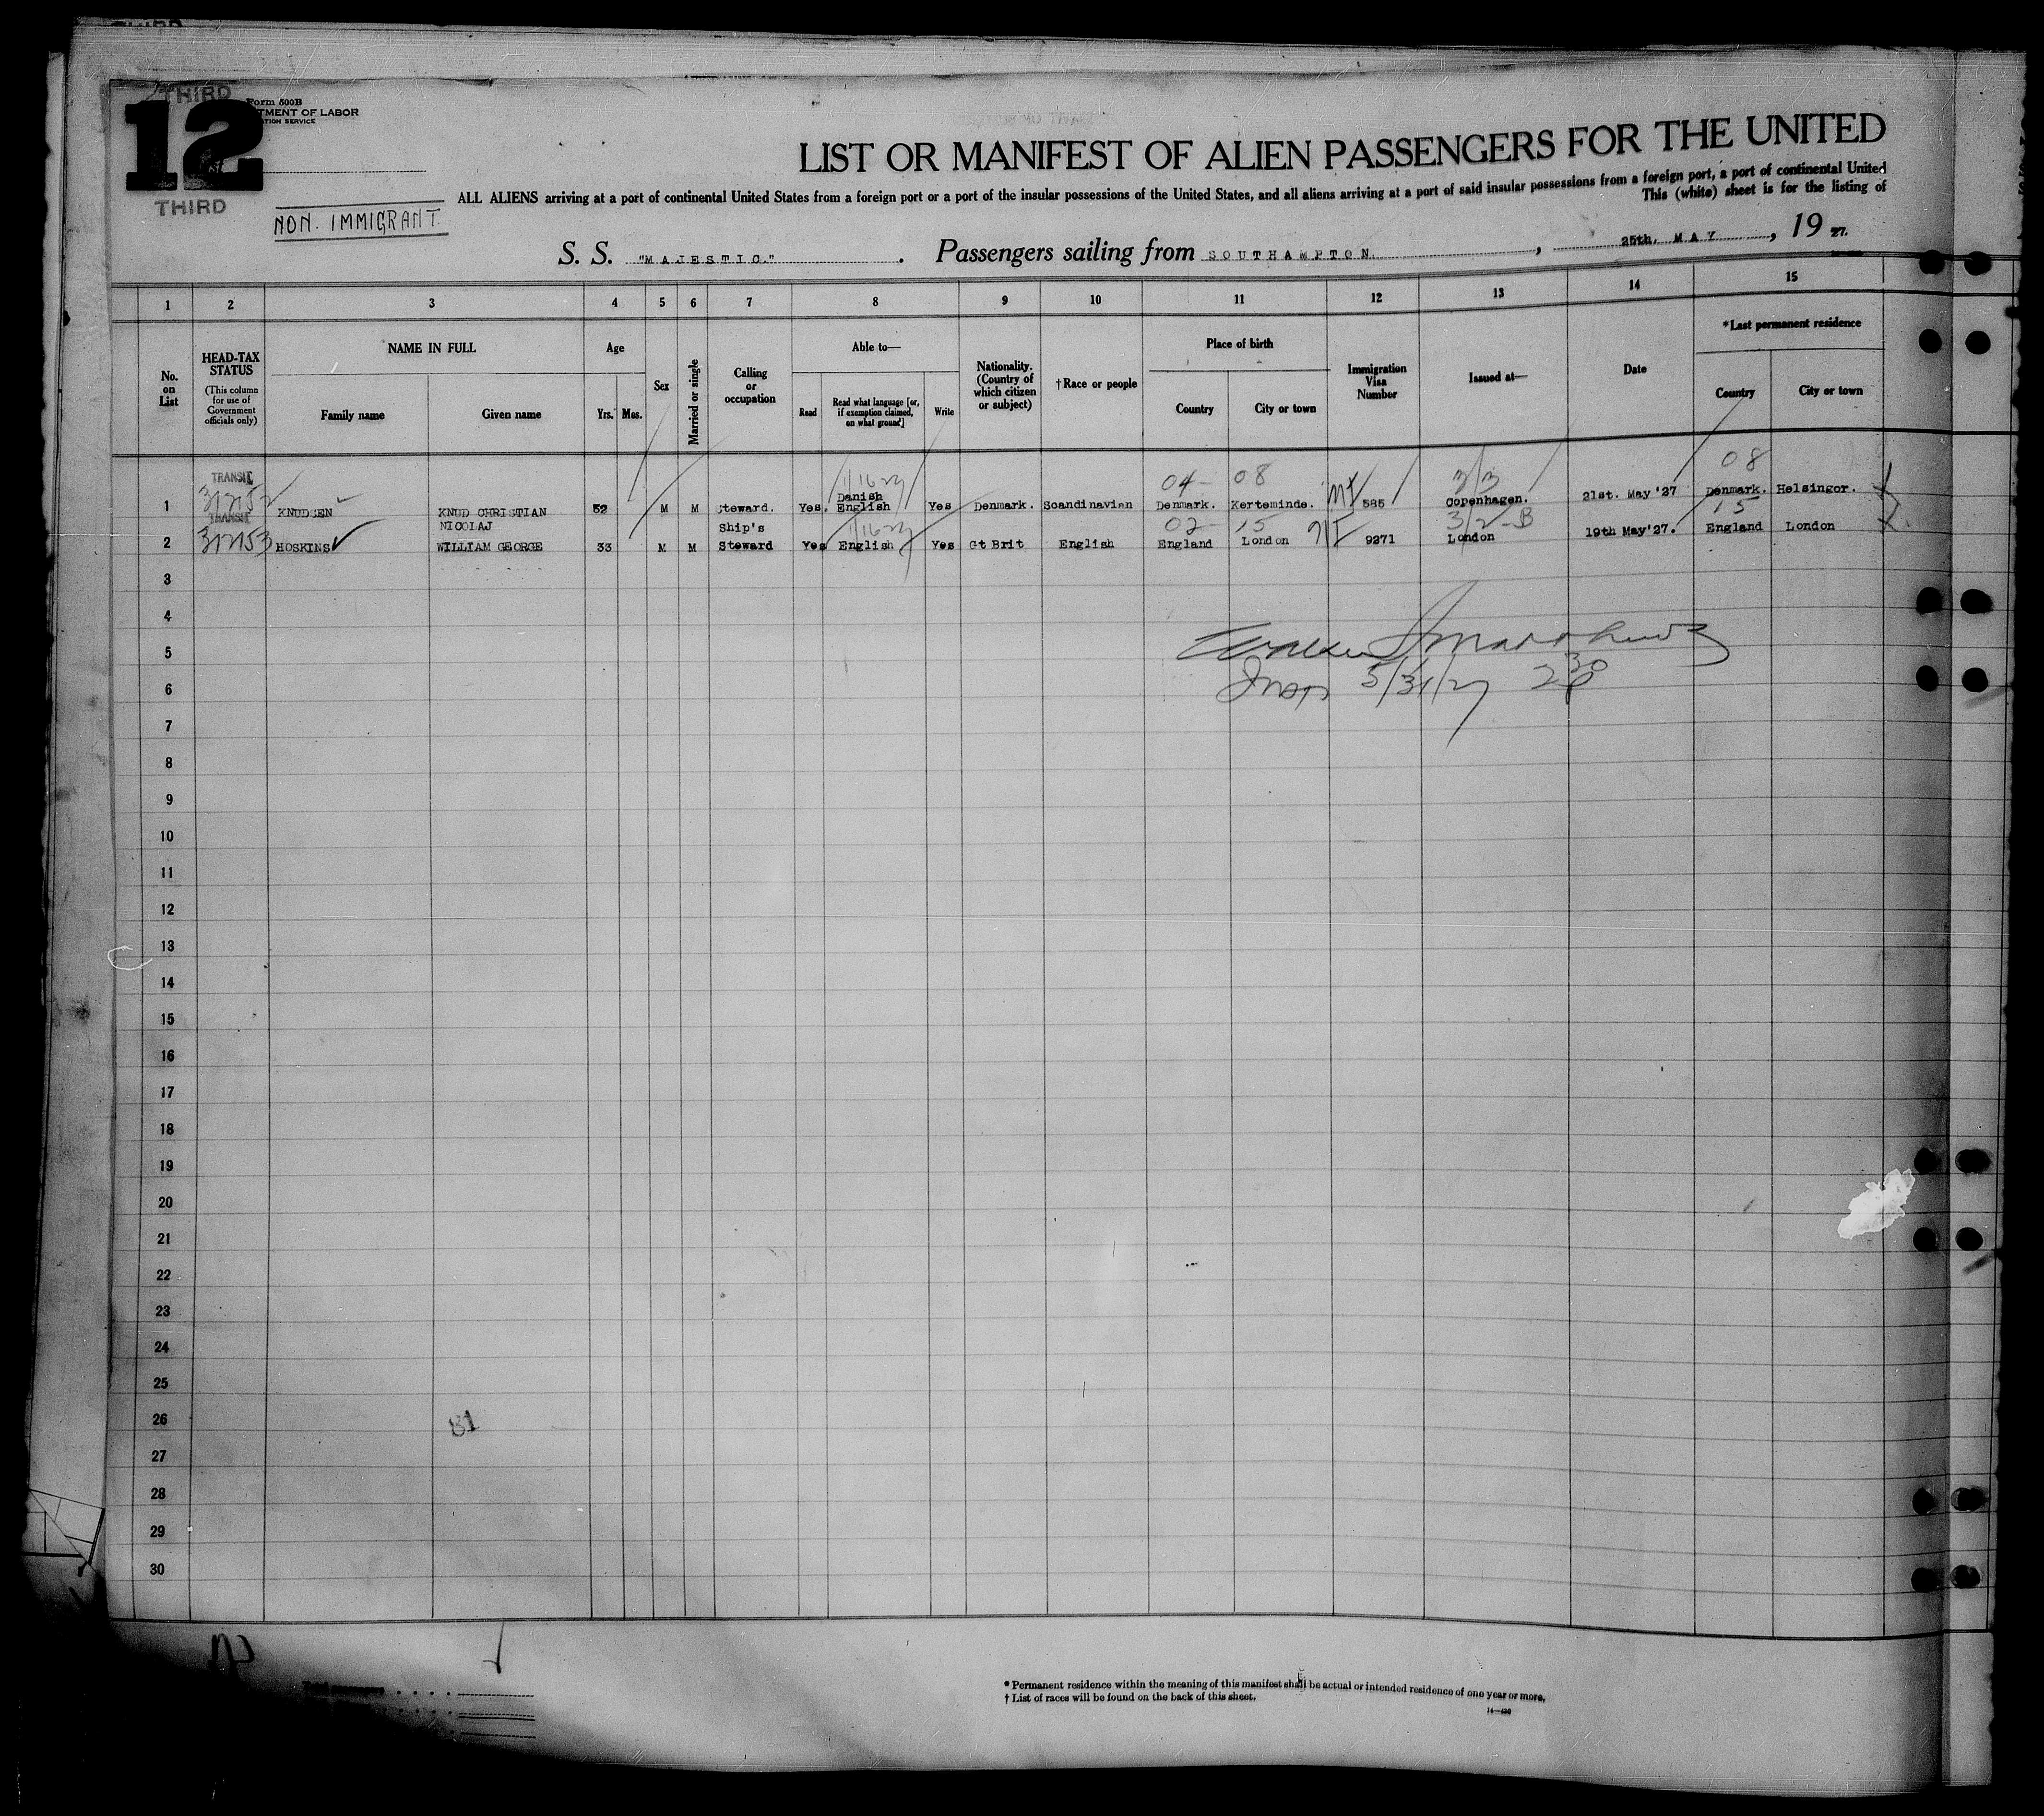 THIRD
12
Form 500B
TMENT OF LABOR
TION SERVICE
THIRD
NON. IMMIGRANT
LIST OR MANIFEST OF ALIEN PASSENGERS FOR THE UNITED
ALL ALIENS arriving at a port of continental United States from a foreign port or a port of the insular possessions of the United States, and all aliens arriving at a port of said insular possessions from a foreign port, a port of continental United
This (white) sheet is for the listing of
S. S. "MAJESTIC." . Passengers sailing from SOUTHAMPTON. , 25th. MAY , 19 27.
1 2 3 4 5 6 7 8 9 10 11 12 13 14 15
No. on List
HEAD-TAX STATUS
(This column for use of Government officials only)
NAME IN FULL
Family name
Given name
Age
Yrs.
Mos.
Sex
Married or single
Calling or occupation
Able to—
Read
Read what language [or, if exemption claimed, on what ground]
Write
Nationality. (Country of which citizen or subject)
†Race or people
Place of birth
Country
City or town
Immigration Visa Number
Issued at—
Date
*Last permanent residence
Country
City or town
TRANSIT
04- 08 3/3 08
1 KNUDSEN KNUD CHRISTIAN NICOLAJ 52 M M Steward. Yes. Danish English Yes Denmark. Scandinavian Denmark. Kerteminde. 585 Copenhagen. 21st. May '27 Denmark. Helsingor.
TRANSIT
02- 15 3/2-B 15
2 312153 HOSKINS WILLIAM GEORGE 33 M M Ship's Steward Yes English Yes Gt Brit English England London 9271 London 19th May'27. England London
3
4
5
6
5/31/27 2 30 P
7
8
9
10
11
12
13
14
15
16
17
18
19
20
21
22
23
24
25
26
81
27
28
29
30
* Permanent residence within the meaning of this manifest shall be actual or intended residence of one year or more.
† List of races will be found on the back of this sheet.
14—430